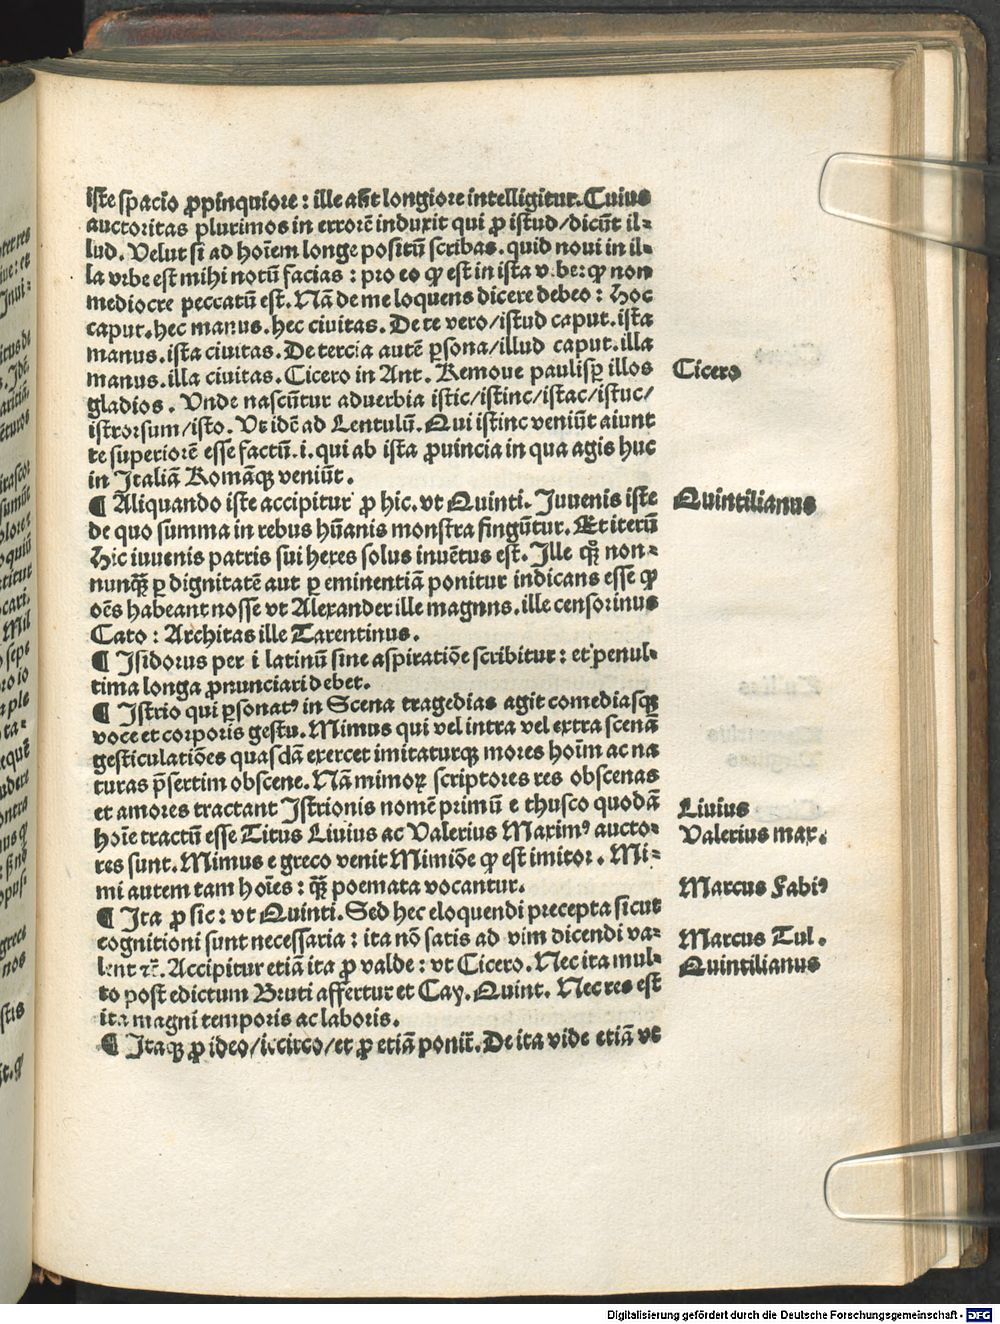 iste spacio ꝓpinquiore : ille aūt longiore intelligitur. Cuius
auctoritas plurimos in errorē induxit qui ꝓ istud/dicūt il⸗
lud. Velut si ad hoīem longe positū scribas. quid noui in il⸗
la vrbe est mihi notū facias : pro eo ꝙ est in ista vrbe: ꝙ non
mediocre peccatū est. Nā de me loquens dicere debeo : hoc
caput. hec manus. hec ciuitas. De te vero/istud caput. ista
manus. ista ciuitas. De tercia autē ꝑsona/illud caput. illa
manus. illa ciuitas. Cicero in Ant. Remoue paulisꝑ illos
Cicero
gladios. Vnde nascūtur aduerbia istic/istinc/istac/istuc/
istrorsum/isto. Vt idē ad Lentulū. Qui istinc veniūt aiunt
te superiorē esse factū .i. qui ab ista ꝓuincia in qua agis huc
in Italiā Romāqꝫ veniūt.
¶ Aliquando iste accipitur ꝓ hic. vt Quinti. Iuuenis iste
Quintilianus
de quo summa in rebus hūanis monstra fingūtur. Et iterū
Hic iuuenis patris sui heres solus inuētus est. Ille qͦꝫ non⸗
nunqͣꝫ ꝑ dignitatē aut ꝑ eminentiā ponitur indicans esse ꝙ
oēs habeant nosse vt Alexander ille magnns. ille censorinus
Cato : Architas ille Tarentinus.
¶ Isidorus per i latinū sine aspiratiōe scribitur : et penul⸗
tima longa ꝓnunciari debet.
¶ Istrio qui ꝑsonatꝰ in Scena tragedias agit comediasqꝫ
voce et corporis gestu. Mimus qui vel intra vel extra scenā
gesticulatiōes quasdā exercet imitaturqꝫ mores hoīm ac na
turas p̄sertim obscene. Nā mimoꝝ scriptores res obscenas
et amores tractant Istrionis nomē primū e thusco quodā
Liuius
hoīe tractū esse Titus Liuius ac Valerius Maximꝰ aucto⸗
Valerius max.
res sunt. Mimus e greco venit Mimiōe ꝙ est imitor. Mi⸗
mi autem tam hoīes : qͣꝫ poemata vocantur.
Marcus Fabiꝰ
¶ Ita ꝓ sic : vt Quinti. Sed hec eloquendi precepta sicut
cognitioni sunt necessaria : ita nō satis ad vim dicendi va⸗
Marcus Tul.
lent ⁊c̄. Accipitur etiā ita ꝓ valde : vt Cicero. Nec ita mul⸗
Quintilianus
to post edictum Bruti affertur et Cay. Quint. Nec res est
ita magni temporis ac laboris.
¶ Itaqꝫ ꝓ ideo/iccirco/et ꝓ etiā ponit̄. De ita vide etiā vt
Digitalisierung gefördert durch die Deutsche Forschungsgemeinschaft - DFG